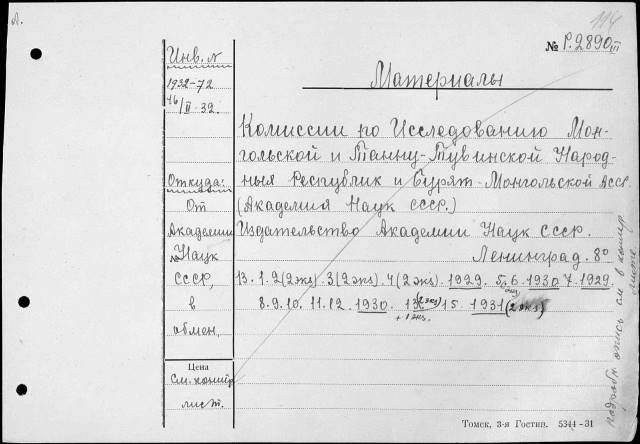 Л.
114
№ Р.2890 III
Инв. №
1932-72
16/II-32.
Материалы
Комиссии по Исследованию Мон-
гольской и Танну-Тувинской Народ-
ных Республик и Бурят-Монгольской Асср
(Академия Наук СССР.)
Издательство Академии Наук СССР.
Ленинград. 8º
13. 1. 2 (2 экз). 3 (2 экз). 4 (2 экз). 1929. 5. 6. 1930 7. 1929.
8. 9. 10. 11. 12. 1930. 13 (2 экз) 15. 1931 (2 экз)
+ 1 экз.
Откуда:
От
Академии
Наук
СССР,
в
обмен.
Цена
См. контр
лист.
подробн. опись см. в контр. листе
Томск, 3-я Гостип. 5344-31